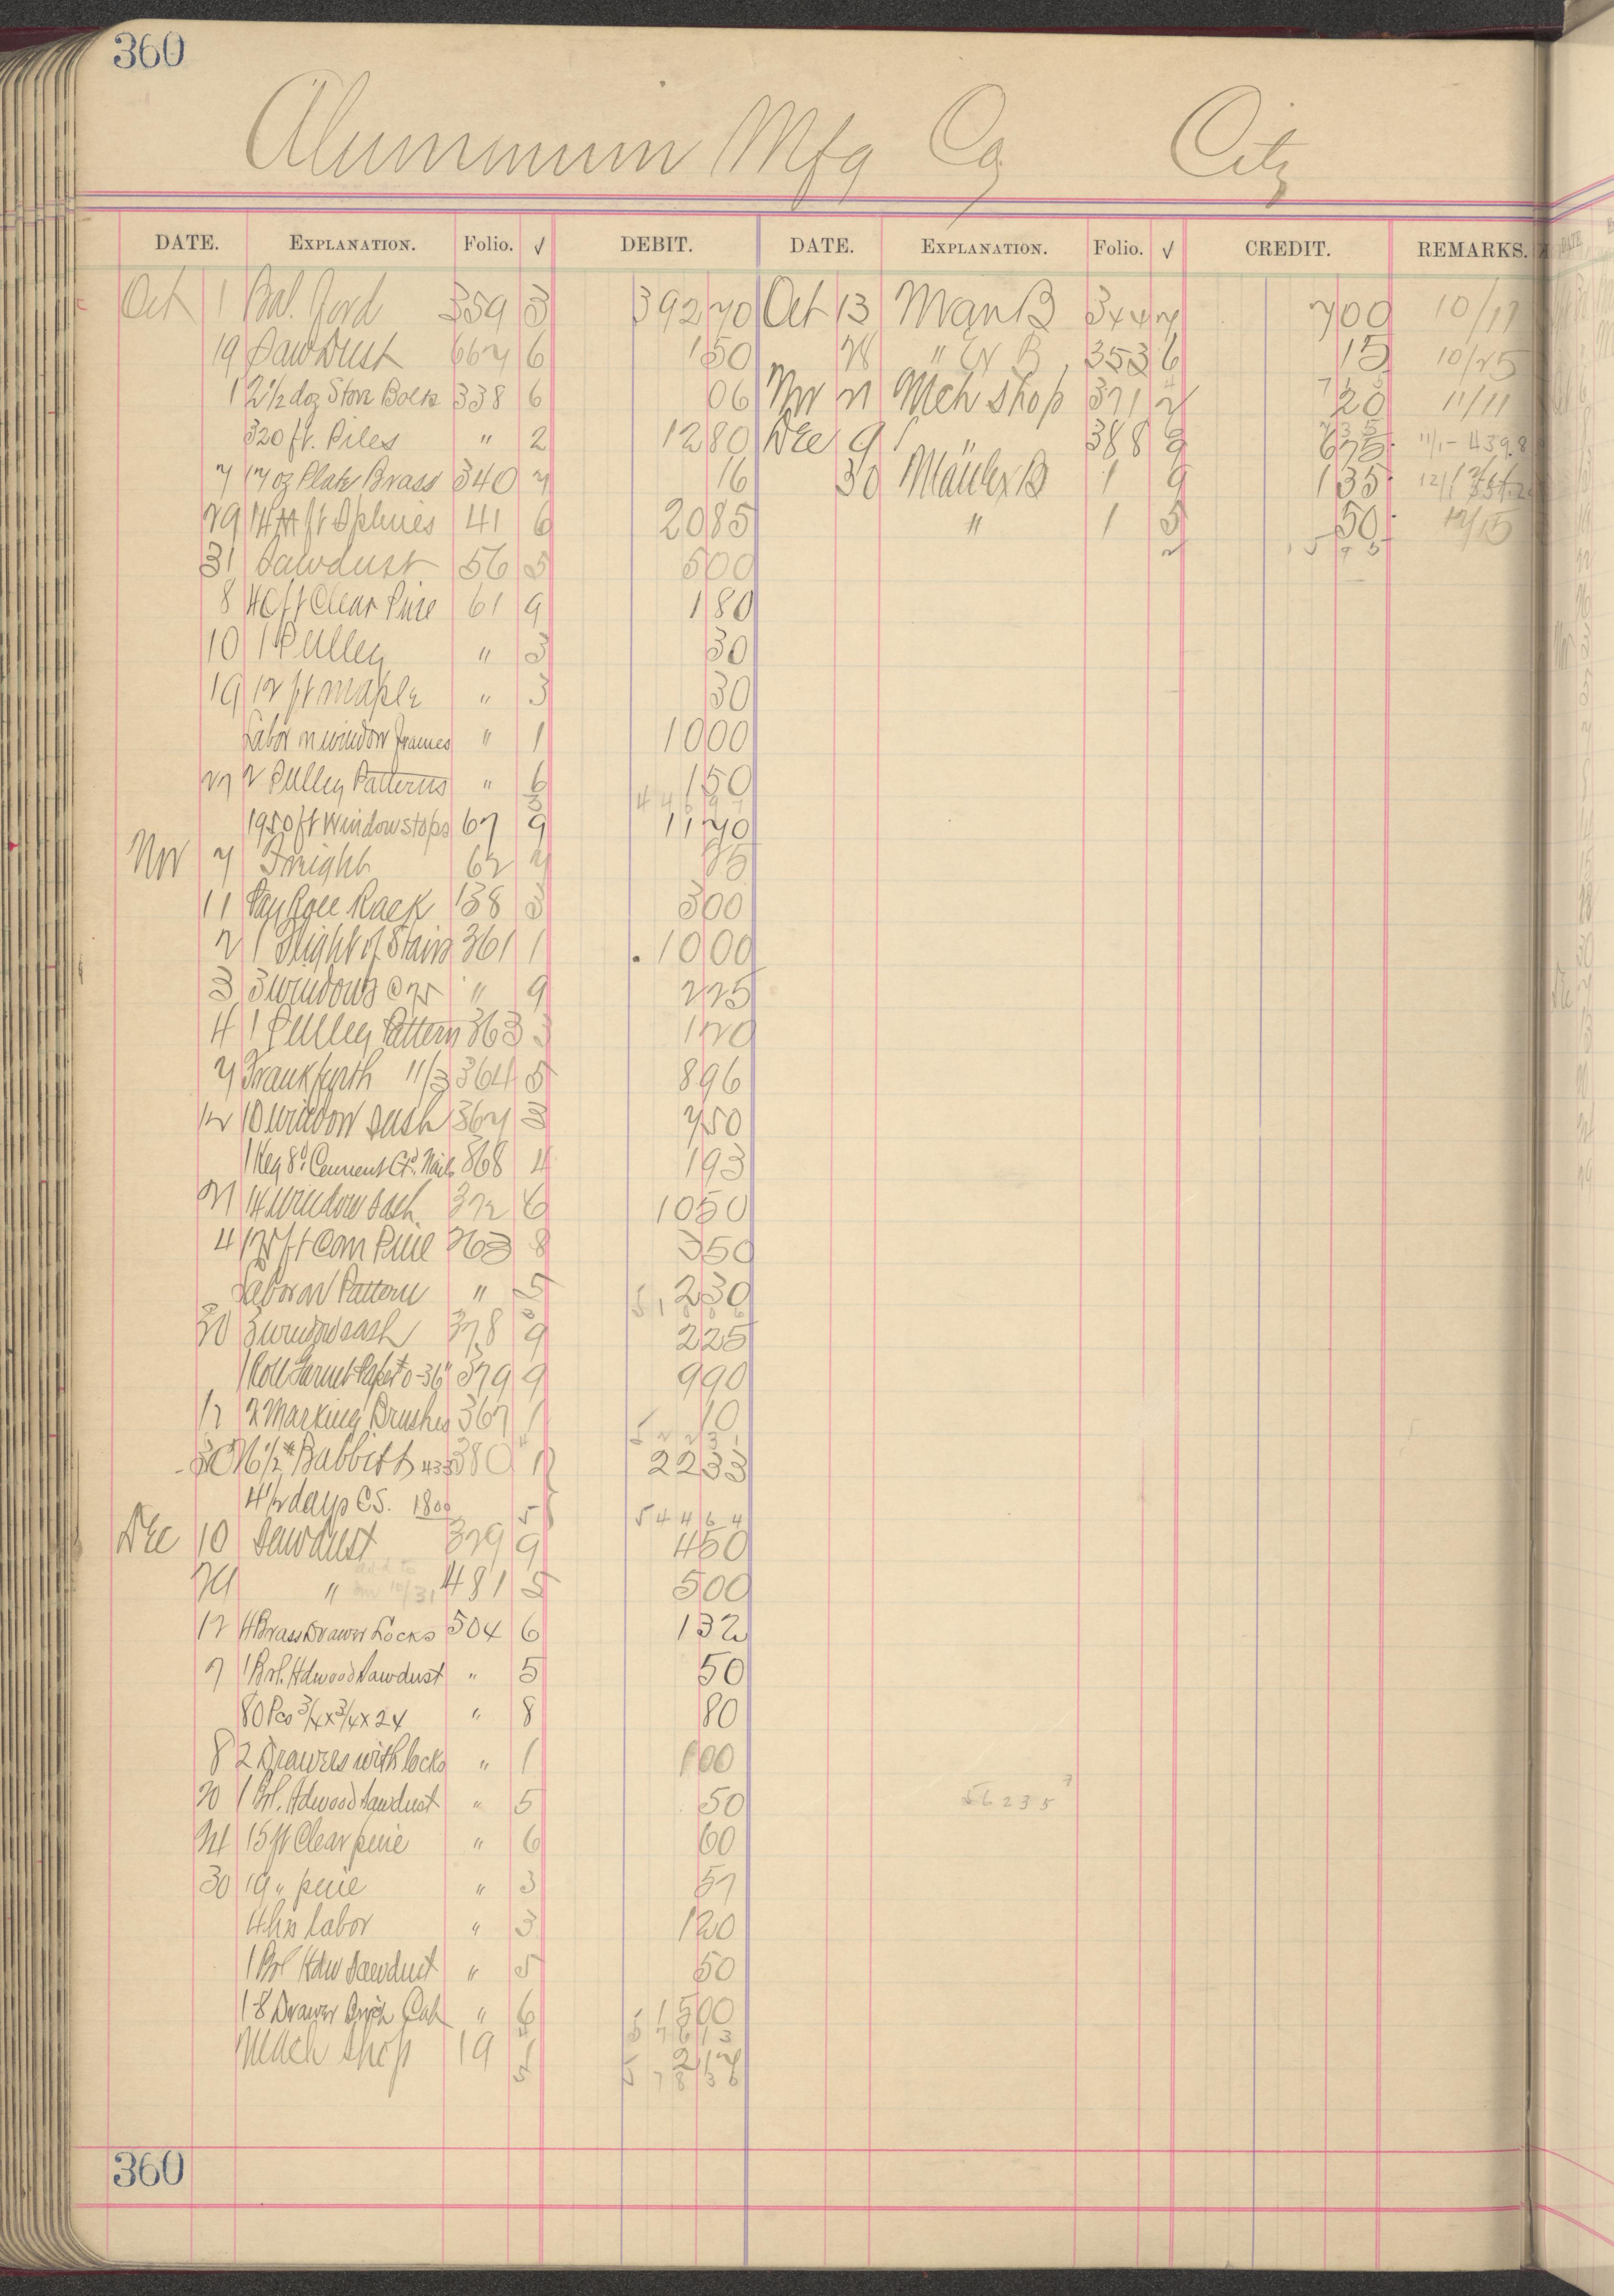 360
Aluminum Mfg Co City
DATE. EXPLANATION. Folio. √ DEBIT. DATE. EXPLANATION. Folio. √ CREDIT. REMARKS.
Oct 1 Bal. Ford 359 3 392 70 Oct 13 Man B 344 7 7 00 10/11
19 Sawdust 667 6 1 50 28 " Ex B 353 6 15 10/25
1 2 1/2 doz Stove Bolts 338 6 06 Nov 21 Mch Shop 371 2 20 11/11
320 ft. Piles " 2 12 80 Dec 9 388 9 6 75
7 17 oz Plate Brass 340 7 16 30 B 1 9 1 35
29 ft Splines 41 6 20 85 " 1 5 50 12/15
31 Sawdust 56 5 5 00
8 40 ft Clear Pine 61 9 1 80
10 1 Pulley " 3 30
19 12 ft Maple " 3 30
Labor on window frames " 1 10 00
27 2 Pulley Patterns " 6 1 50
1950 ft Window stops 67 9 11 70
Nov 7 Freight 62 7 25
11 Pay Roll Rack 138 3 3 00
2 1 Flight of Stairs 361 1 10 00
3 3 windows @ 75 " 9 2 25
4 1 Pulley Pattern 363 3 1 20
7 Frankfurth 11/3 364 5 8 96
12 10 window sash 367 3 7 50
1 Keg 8d Cement Ctd. Nails 368 4 1 93
21 14 window sash 372 6 10 50
4 125 ft Com Pine 363 8 3 50
Labor on Pattern " 5 2 30
30 3 window sash 378 9 2 25
1 Roll Garnet Paper 0-36" 379 9 9 90
12 2 Marking Brushes 367 1 10
5 2 2 3 1
30 76 1/2# Babbitt 433 380 1 22 33
4 1/2 days CS. 1800
5 4 4 6 4
Dec 10 Sawdust 379 9 4 50
24 " 481 5 5 00
12 4 Brass Drawer Locks 504 6 1 32
7 1 Brl. Hdwood Sawdust " 5 50
80 Pcs 3/4 x 3/4 x 24 " 8 80
8 2 Drawers with locks " 1 1 00
20 1 Brl. Hdwood Sawdust " 5 50
5 6 2 3 5
24 15 ft Clear pine " 6 60
30 19 " pine " 3 57
4 hrs labor " 3 1 20
1 Brl Hdw Sawdust " 5 50
1-8 Drawer Birch Cab " 6 15 00
5 7 6 1 3
Mach Shop 19 1 2 17
5 7 8 3 6
360